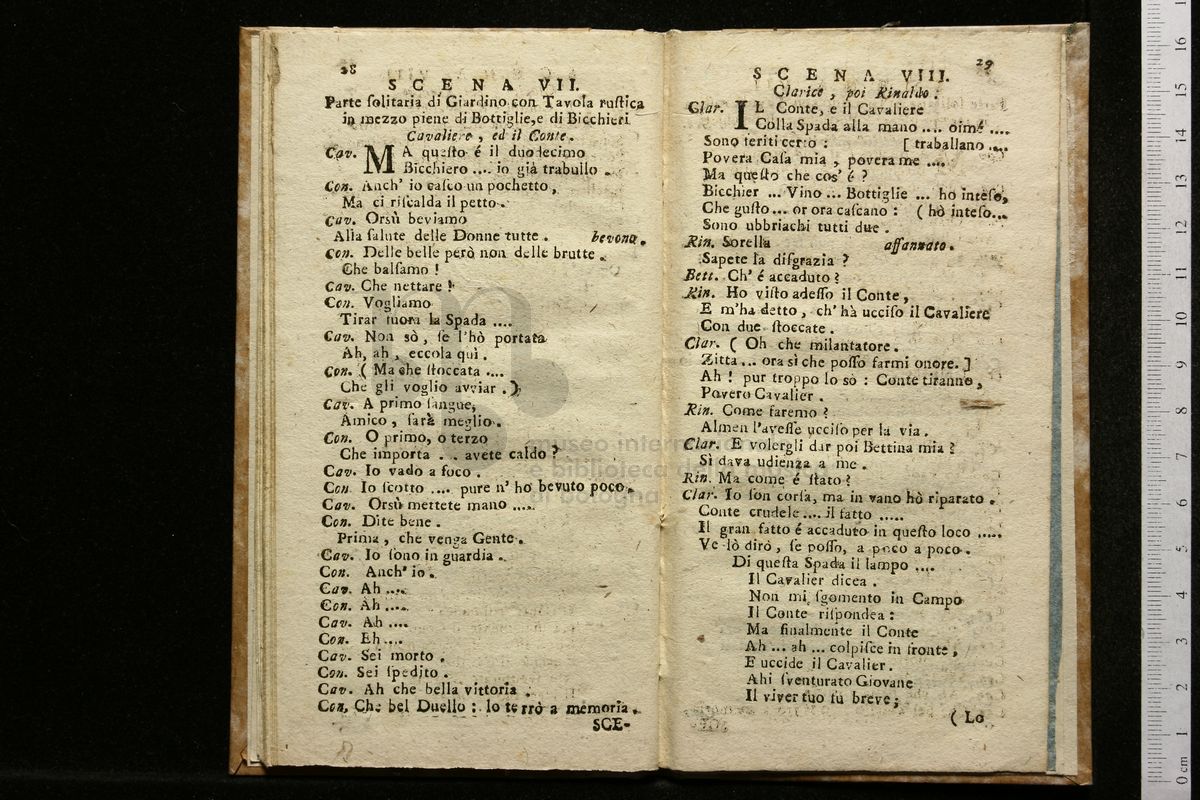 28
SCENA VII.
Parte ſolitaria di Giardino con Tavola ruſtica
in mezzo piene di Bottiglie, e di Bicchieri
Cavaliere, ed il Conte.
Cav. MA queſto é il duodecimo
Bicchiero .... io già trabullo .
Con. Anch' io caſco un pochetto,
Ma ci riſcalda il petto.
Cav. Orsù beviamo
Alla ſalute delle Donne tutte . bevono.
Con. Delle belle però non delle brutte .
Che balſamo !
Cav. Che nettare !
Con. Vogliamo
Tirar fuora la Spada ....
Cav. Non sò, ſe l'hò portata
Ah, ah, eccola quì .
Con. ( Ma che ſtoccata ....
Che gli voglio avviar . )
Cav. A primo ſangue,
Amico, ſarà meglio.
Con. O primo, o terzo
Che importa . . . avete caldo ?
Cav. Io vado a foco .
Con Io ſcotto .... pure n' ho bevuto poco.
Cav. Orsù mettete mano .....
Con. Dite bene .
Prima, che venga Gente .
Cav. Io ſono in guardia .
Con. Anch' io .
Cav. Ah ....
Con. Ah ....
Cav. Ah ....
Con. Eh ....
Cav. Sei morto .
Con. Sei ſpedito .
Cav. Ah che bella vittoria .
Con. Che bel Duello : lo terrò a memoria .
SCE-
29
SCENA VIII.
Clarice, poi Rinaldo :
Clar. IL Conte, e il Cavaliere
Colla Spada alla mano .... oimé ....
Sono feriti certo : [ traballano ....
Povera Caſa mia , povera me ....
Ma queſto che cos' é ?
Bicchier ... Vino ... Bottiglie ... ho inteſo,
Che guſto ... or ora caſcano : ( hò inteſo...
Sono ubbriachi tutti due .
Rin. Sorella affannato .
Sapete la diſgrazia ?
Bett. Ch' é accaduto ?
Rin. Ho viſto adeſſo il Conte ,
E m'ha detto , ch' hà ucciſo il Cavaliere
Con due ſtoccate .
Clar. ( Oh che milantatore .
Zitta ... ora sì che poſſo farmi onore . ]
Ah ! pur troppo lo sò : Conte tiranno ,
Povero Cavalier .
Rin. Come faremo ?
Almen l'aveſſe ucciſo per la via .
Clar. E volergli dar poi Bettina mia ?
Sì dava udienza a me .
Rin. Ma come é ſtato ?
Clar. Io ſon corſa, ma in vano hò riparato .
Conte crudele .... il fatto .....
Il gran fatto é accaduto in queſto loco .....
Ve lò dirò , ſe poſſo, a poco a poco .
Di queſta Spada il lampo ....
Il Cavalier dicea .
Non mi ſgomento in Campo
Il Conte riſpondea :
Ma finalmente il Conte
Ah ... ah ... colpiſce in fronte ,
E uccide il Cavalier .
Ahi ſventurato Giovane
Il viver tuo fù breve ;
( Lo
museo internazionale
e biblioteca della musica
di bologna
0 cm 1 2 3 4 5 6 7 8 9 10 11 12 13 14 15 16